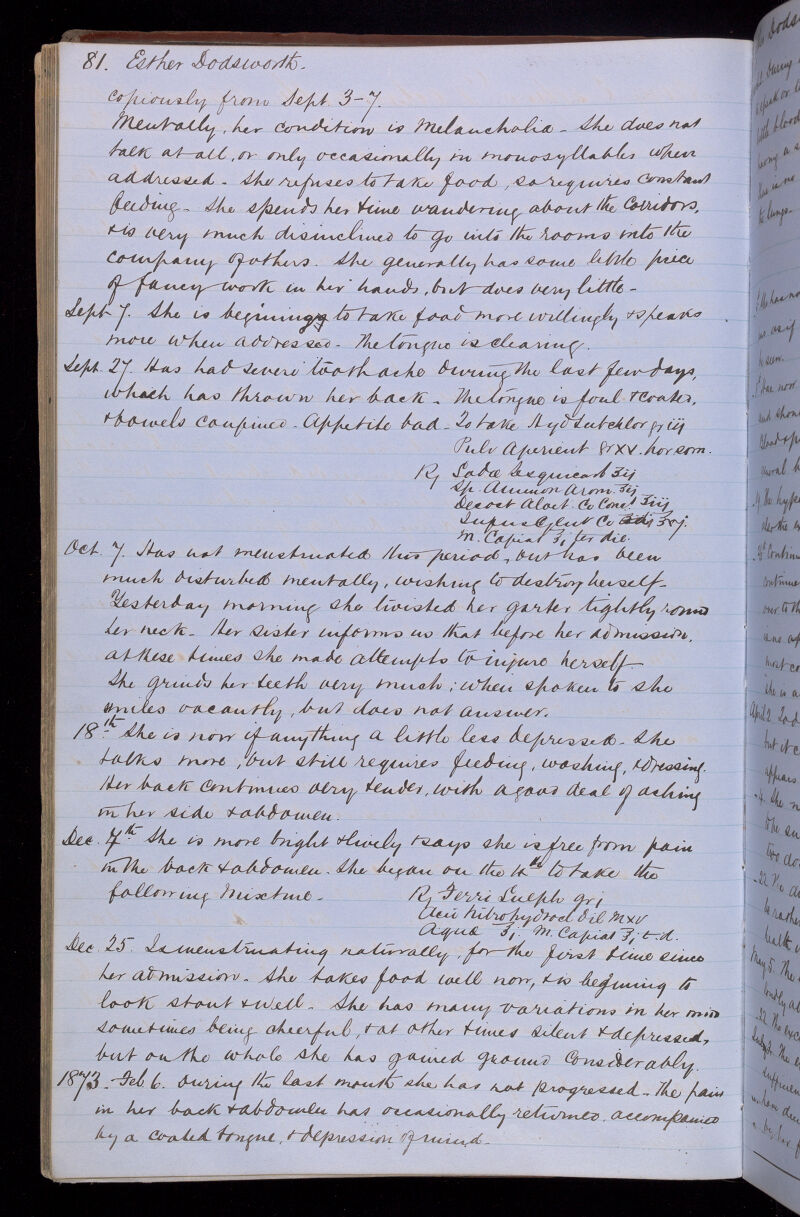 81. Esther Dodsworth.
copiously from Sept. 3-7.
Mentally, her condition is Melancholia - She does not
talk at all, or only occasionally in monosyllables when
addressed - She refuses to take food, so requires constant
feeding - She spends her time wandering about the Corridors,
& is very much disinclined to go into the rooms into the
company of others. She generally has some little piece
of fancy work in her hands, but does very little -
Sept 7. She is beginning to take food more willingly & speaks
more when addressed - The tongue is clearing.
Sept. 27. Has had severe toothache during the last few days,
which has thrown her back - The tongue is foul & coated,
& bowels confined - Appetite bad - To take Hyd Subchlor gr iij
Pulv Aperient gr XX. hor som.
R Sodæ Sesquicarb ʒij
Sp. Ammon Arom ʒij
Decoct Aloet. Co Conc. ʒiij
Infus Gent Co ʒvj.
M. Capiat ʒj ter die.
Oct. 7. Has not menstruated this period, but has been
much disturbed mentally, wishing to destroy herself -
Yesterday morning she twisted her garter tightly round
her neck - Her sister informs us that before her admission,
at these times she made attempts to injure herself
She grinds her teeth very much; when spoken to she
smiles vacantly, but does not answer.
18th She is now if anything a little less depressed - She
talks more, but still requires feeding, washing, & dressing.
Her back continues very tender, with a good deal of aching
in her side & abdomen.
Dec. 7th She is more bright & lively & says she is free from pain
in the back & abdomen. She began on the 4th to take the
following Mixture - R Ferri Sulph gr j
Acid Nitrohydrochl Dil M xv
Aquæ ʒj. M. Capiat ʒj t. d.
Dec. 25. Is menstruating naturally, for the first time since
her admission - She takes food well now, & is beginning to
look stout & well - She has many variations in her mind
sometimes being cheerful, & at other times silent & depressed,
but on the whole she has gained ground considerably.
1873. Feb 6. During the last month she has not progressed - The pain
in her back & abdomen has occasionally returned, accompanied
by a coated tongue, & depression of mind -